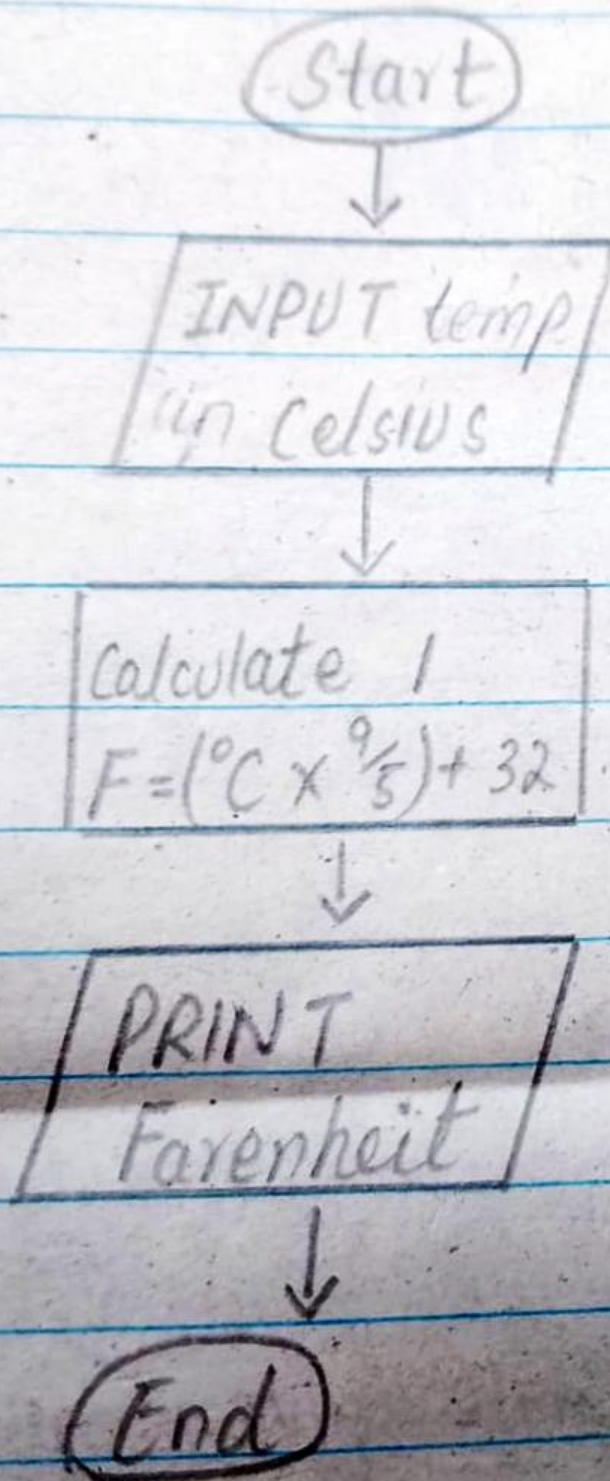 Start
INPUT temp
in Celsius
Calculate 1
F=(°C × 9/5)+ 32
PRINT
Farenheit
End